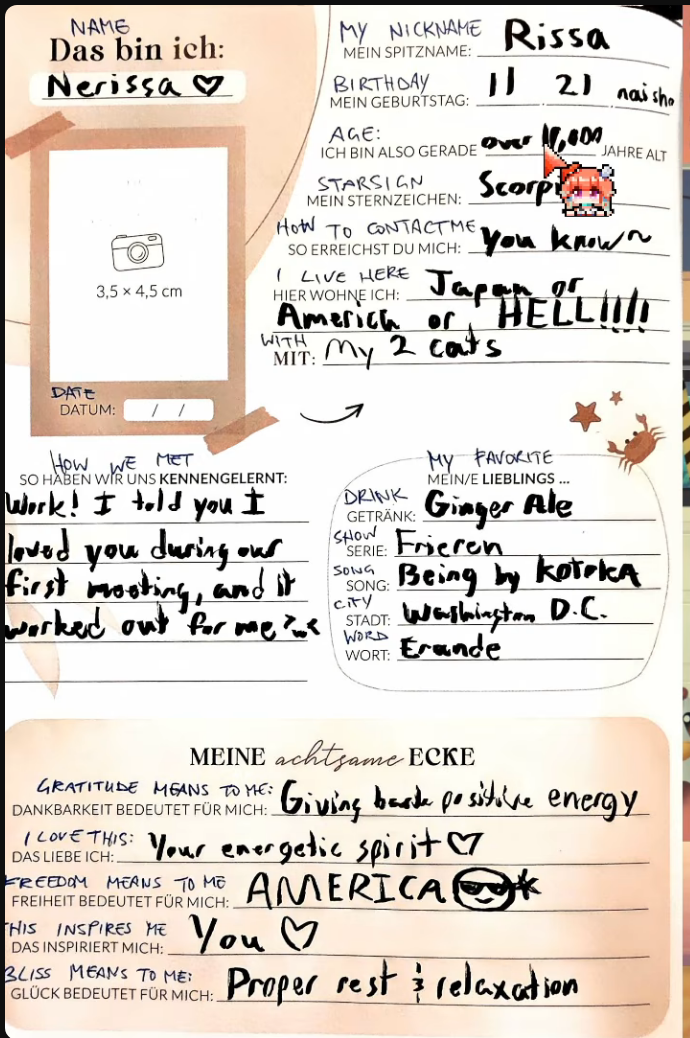 NAME
Das bin ich:
Nerissa ♡
3,5 × 4,5 cm
DATE
DATUM: / /
MY NICKNAME
MEIN SPITZNAME: Rissa
BIRTHDAY
MEIN GEBURTSTAG: 11 . 21 naisho
AGE:
ICH BIN ALSO GERADE over 10,000 JAHRE ALT
STARSIGN
MEIN STERNZEICHEN:
HOW TO CONTACT ME
SO ERREICHST DU MICH: You know~
I LIVE HERE
HIER WOHNE ICH: Japan or
America or HELL!!!!
WITH
MIT: My 2 cats
HOW WE MET
SO HABEN WIR UNS KENNENGELERNT:
Work! I told you I
loved you during our
first meeting, and it
worked out for me >~<
MY FAVORITE
MEIN/E LIEBLINGS ...
DRINK
GETRÄNK: Ginger Ale
SHOW
SERIE: Frieren
SONG
SONG: Being by KOTOKA
CITY
STADT: Washington D.C.
WORD
WORT: Erande
MEINE achtsame ECKE
GRATITUDE MEANS TO ME:
DANKBARKEIT BEDEUTET FÜR MICH: Giving back positive energy
I LOVE THIS:
DAS LIEBE ICH: Your energetic spirit ♡
FREEDOM MEANS TO ME
FREIHEIT BEDEUTET FÜR MICH: AMERICA
THIS INSPIRES ME
DAS INSPIRIERT MICH: You ♡
BLISS MEANS TO ME:
GLÜCK BEDEUTET FÜR MICH: Proper rest & relaxation